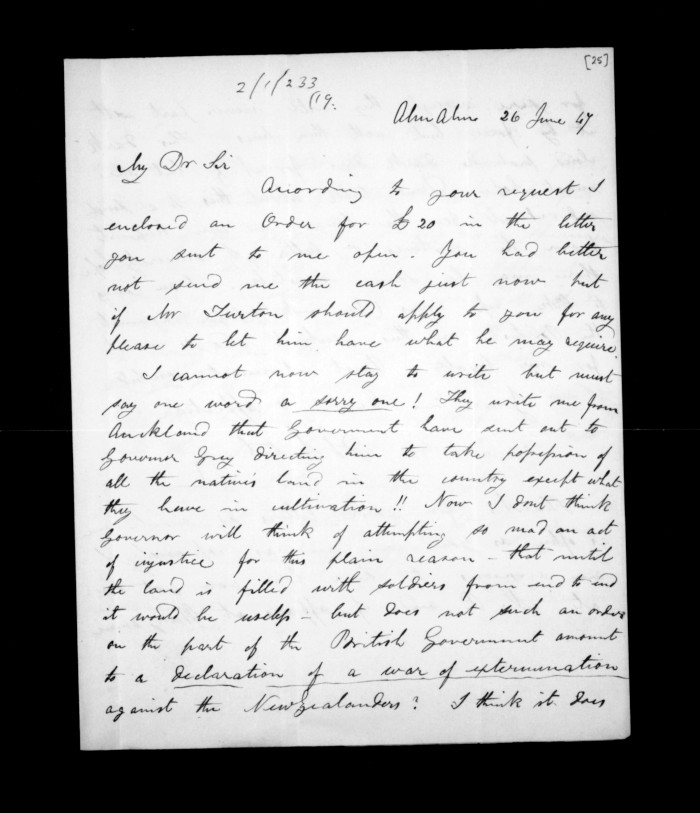 [25]
2/1/233
/19.
Ahu Ahu 26 June 47
My Dr Sir
According to your request I
enclosed an Order for £20 in the letter
you sent to me open. You had better
not send me the cash just now but
if Mr Turton should apply to you for any
please to let him have what he may require.
I cannot now stay to write but must
say one word a sorry one! They write me from
Auckland that Government have sent out to
Governor Grey directing him to take possession of
all the natives land in the country except what
they have in cultivation!! Now I dont think
Governor will think of attempting so mad an act
of injustice for this plain reason - that until
the land is filled with soldiers from end to end
it would be useless - but does not such an order
on the part of the British Government amount
to a declaration of a war of extermination
against the New Zealanders? I think it does